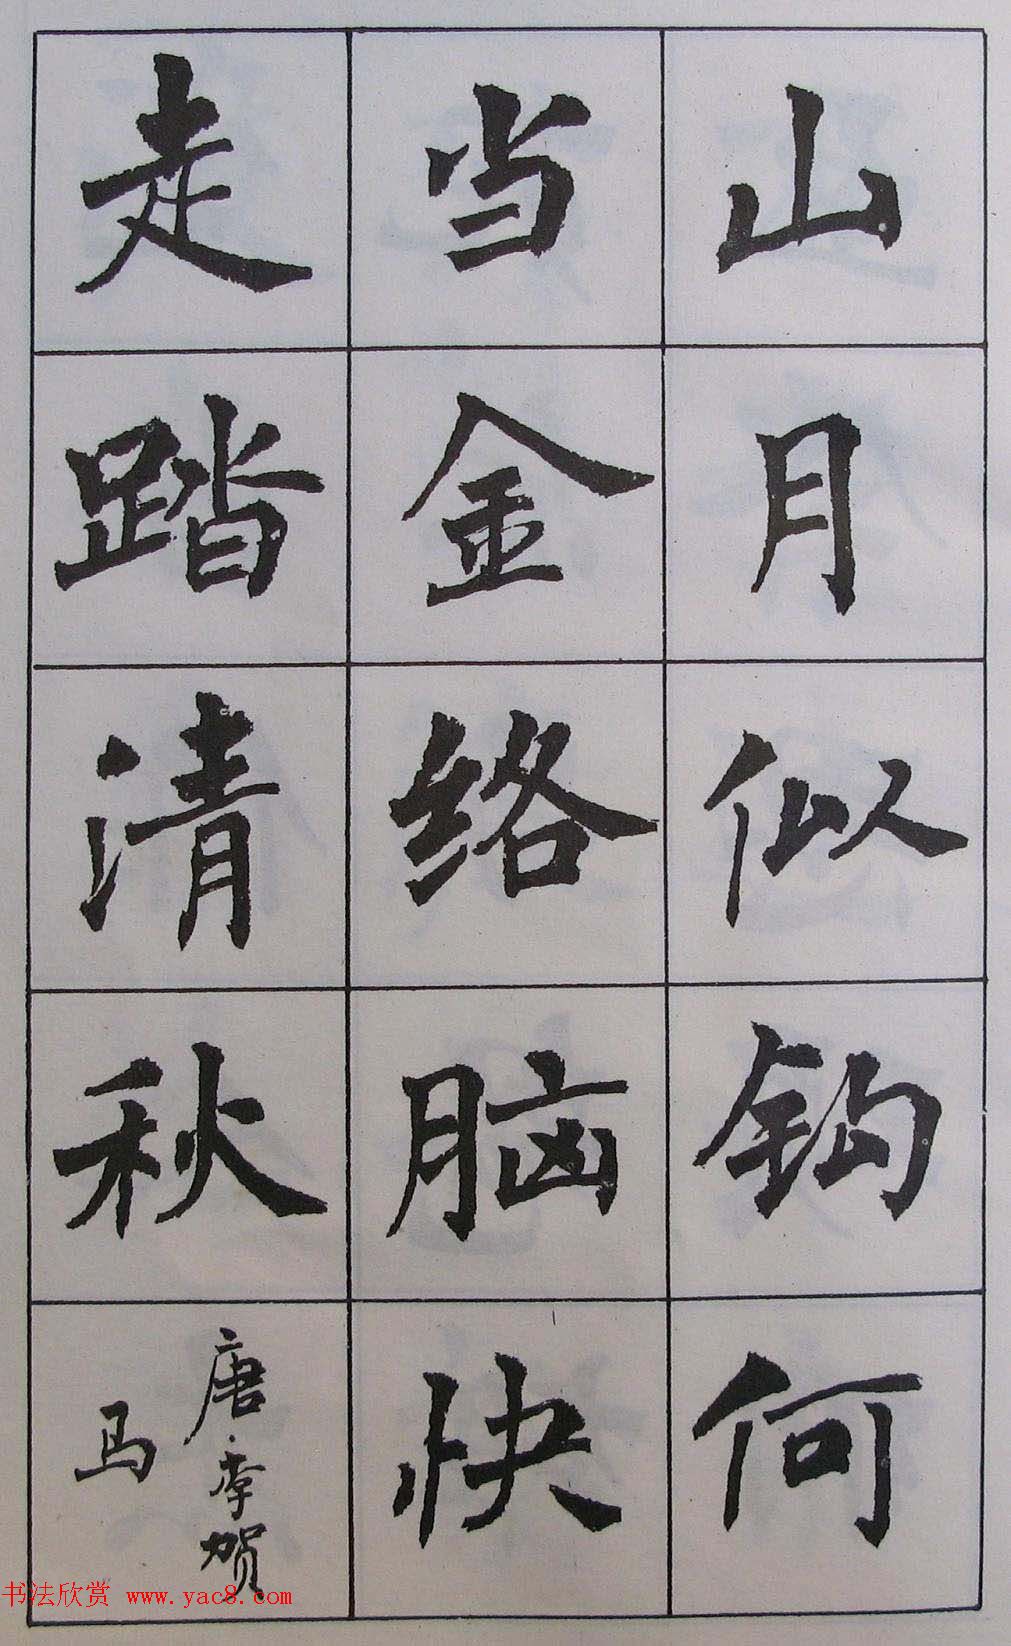 山月似钩何
当金络脑快
走踏清秋
唐·李贺
马
书法欣赏 www.yac8.com